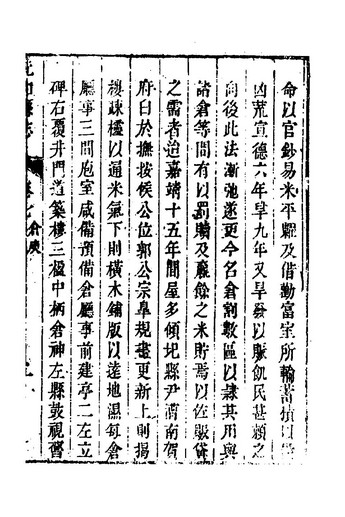 命以官鈔易米平糶及借勸富室所輸蓄積以
凶荒宣德六年旱九年又旱發以賑飢民甚賴之
向後此法漸弛遂更今名倉割數區以隷其用與
諸倉等間有以罰贖及羸餘之米貯焉以佐賑貸
之需者迨嘉靖十五年間屋多傾圯縣尹莆南賀
府曰於撫按侯公位郭公宗皐規畫更新上則揭
椶疎欞以通米氣下則橫木鋪版以遠地濕每倉
廳事三間庖室咸備預備倉廳事前建亭二左立
碑右覆井門道築樓三楹中柄倉神左縣鼓視晷
卷七 倉庾